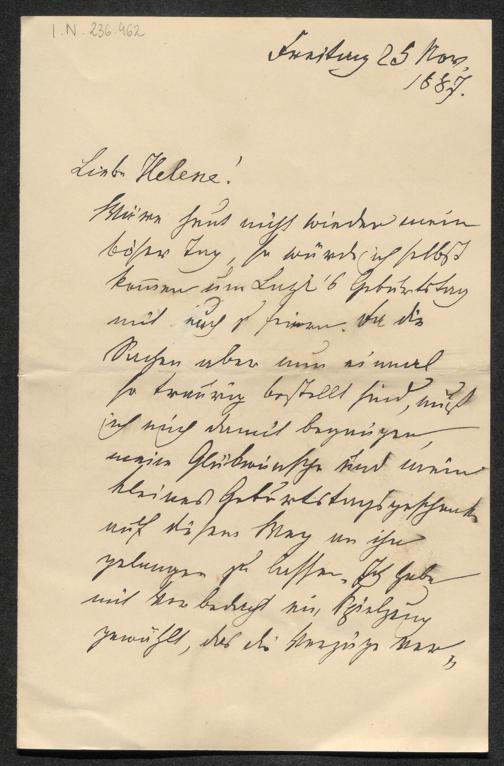 I.N. 236.462
Freitag 25 Nov.
1887.
Liebe Helene!
Wäre heut nicht wieder mein
böser Tag, so würde ich selbst
kommen um Luzi's Geburtstag
mit euch zu feiern. Da die
Sachen aber nun einmal
so traurig bestellt sind, muß
ich mich damit begnügen,
meine Glükwünsche und mein
kleines Geburtstagsgeschenk
auf diesem Weg an ihn
gelangen zu lassen. Ich habe
mit Vorbedacht ein Spielzeug
gewählt, das die Vorzüge ver„